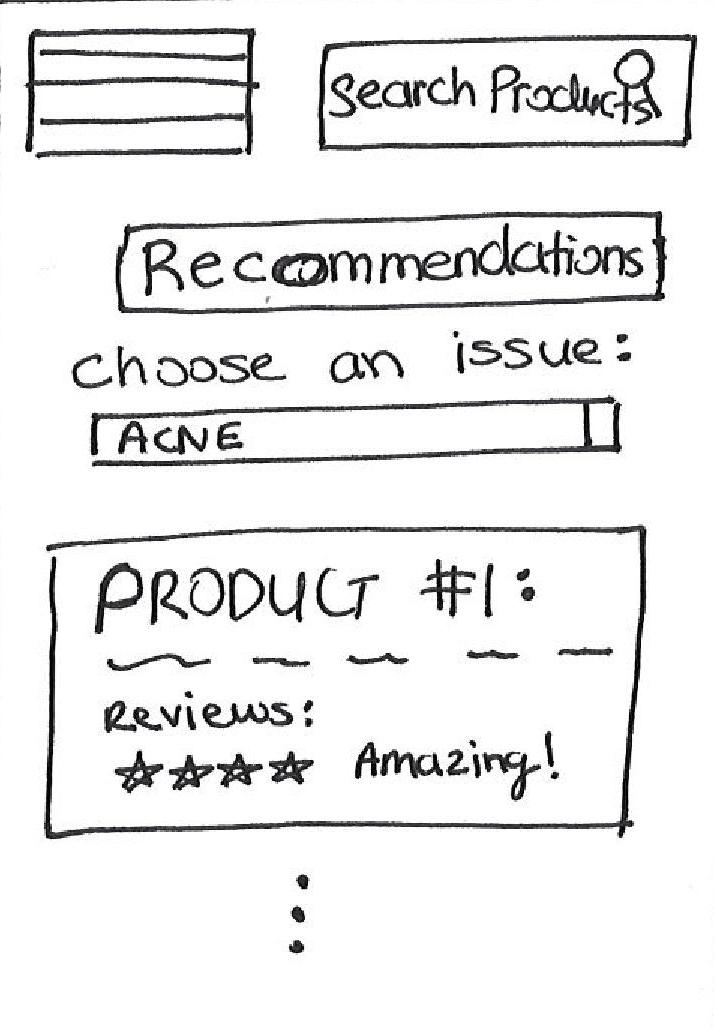 Search Products
Recommendations
choose an issue:
ACNE
PRODUCT #1:
Reviews:
Amazing!